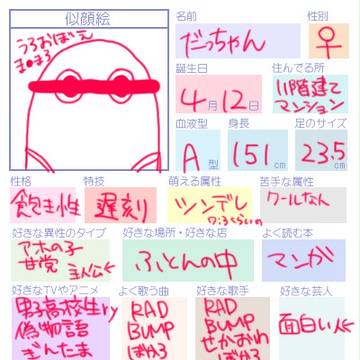 似顔絵
うろおぼえ
ま●まろ
名前
だっちゃん
性別
♀
誕生日
4月12日
住んでる所
11階建て
マンション
血液型
A型
身長
151cm
足のサイズ
23.5cm
性格
飽き性
特技
遅刻
萌える属性
ツンデレ
7:3くらいの
苦手な属性
クールなん
好きな異性のタイプ
アホの子
甘党
好きな場所・好きな店
ふとんの中
よく読む本
マンガ
好きなTVやアニメ
男子高校生ry
偽物語
ぎんたま
よく歌う曲
RAD
BUMP
ぼかろ
好きな歌手
RAD
BUMP
せかおわ
ぼかろ
好きな芸人
面白い人